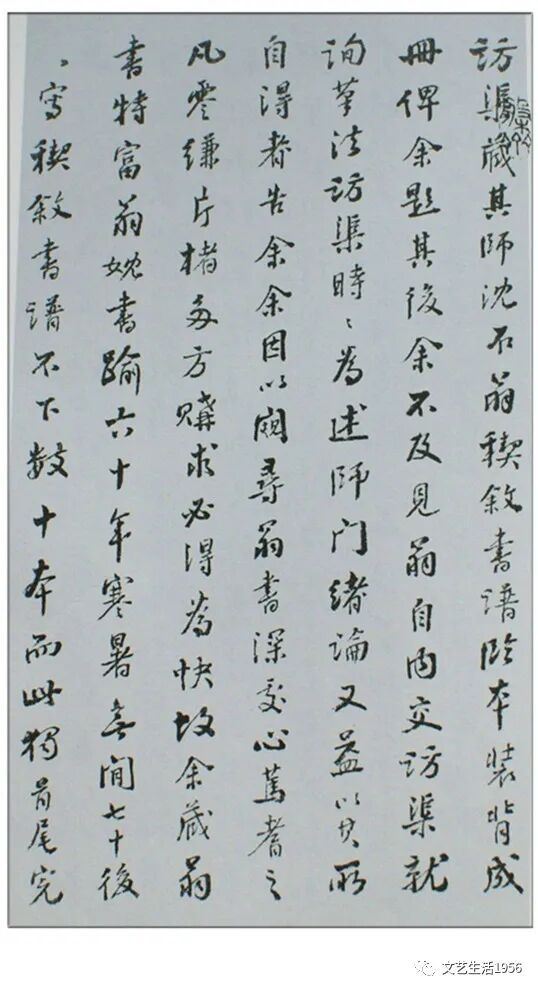 訪渠藏其師沈石翁稧敘書譜臨本裝背成
冊俾余題其後余不及見翁自内交訪渠就
詢筆法訪渠時〻為述師门緒論又益以其所
自得者告余余因以闚尋翁書深契心篤耆之
凡零縑片楮多方購求必得為快故余藏翁
書特富翁晚書踰六十年寒暑無間七十後
〻寫稧敘書譜不下數十本而此獨首尾完
文艺生活1956